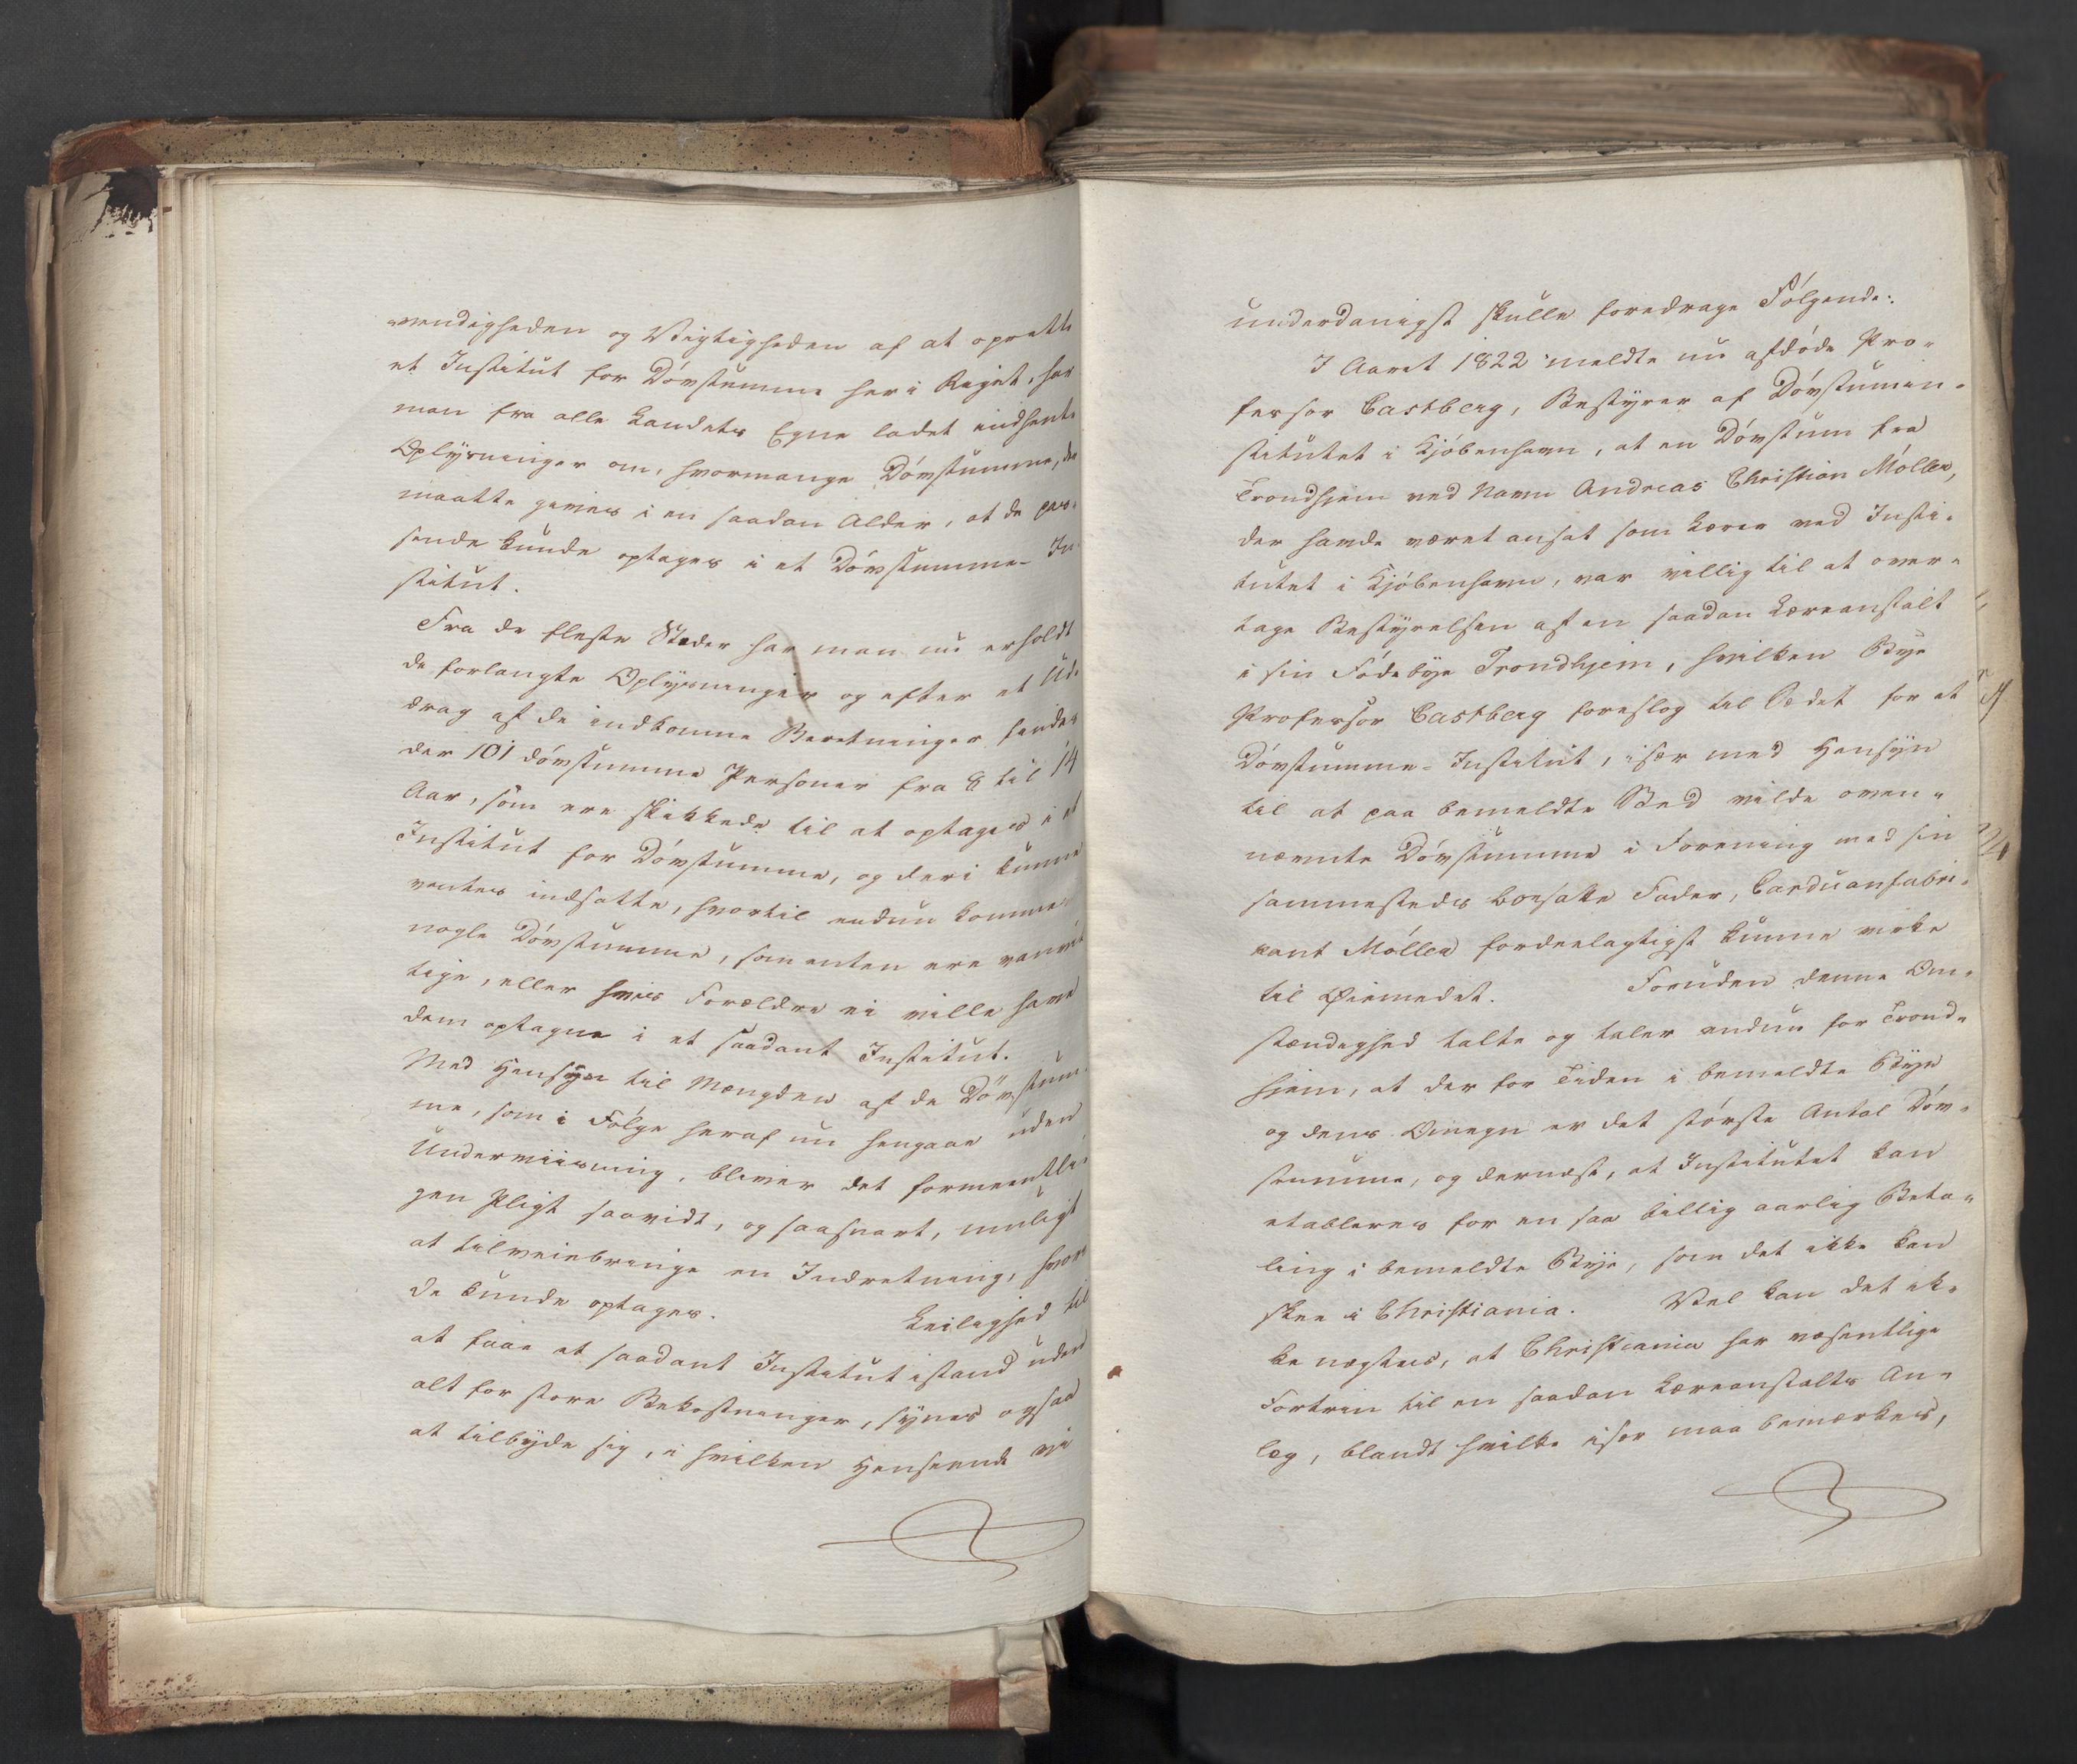 vendigheden og Vigtigheden af at oprette
et Institut for Døvstumme her i Riget, har
man fra alle Landets Egne ladet indhente
Oplysninger om, hvormange Døvstumme, der
maatte gives i en saadan Alder, at de pas-
sende kunde optages i et Døvstumme-In-
stitut.
Fra de fleste Steder har man nu erholdt
de forlangte Oplysninger og efter et Ud-
drag af de indkomne Beretninger findes
der 101 døvstumme Personer fra 8 til 14
Aar, som ere skikkede til at optages i et
Institut for Døvstumme, og deri kunne
ventes indsatte, hvortil endnu komme
nogle Døvstumme, som enten ere vanvit-
tige, eller hvis Forældre ei ville have
dem optagne i et saadant Institut.
Med Hensyn til Mængden af de Døvstum-
me, som i Følge heraf nu hengaae uden
Underviisning, bliver det formeentli-
gen Pligt saavidt, og saasnart, muligt
at tilveiebringe en Indretning, hvor
de kunde optages. Leilighed til
at faae et saadant Institut istand uden
alt for store Bekostninger, synes ogsaa
at tilbyde sig, i hvilken Henseende vi
underdanigst skulle foredrage Følgende:
I Aaret 1822 meldte nu afdøde Pro-
fessor Castberg, Bestyrer af Døvstumin-
stitutet i Kjøbenhavn, at en Døvstum fra
Trondhjem ved Navn Andreas Christian Møller,
der havde været ansat som Lærer ved Insti-
tutet i Kjøbenhavn, var villig til at over-
tage Bestyrelsen af en saadan Læreanstalt
i sin Fødebye Trondhjem, hvilken Bye
Professor Castberg foreslog til Sædet for et
Døvstumme-Institut, især med Hensyn
til at paa bemeldte Sted vilde oven-
nævnte Døvstumme i Forening med sin
sammesteds boesatte Fader, Carduanfabri-
kant Møller fordeelagtigst kunne virke
til Øiemedet. Foruden denne Om-
stændighed talte og taler endnu for Trond-
hjem, at der for Tiden i bemeldte Bye
og dens Omegn er det største Antal Døv-
stumme, og dernæst, at Institutet kan
etableres for en saa billig aarlig Beta-
ling i bemeldte Bye, som det ikke kan
skee i Christiania. Vel kan det ik-
ke nægtes, at Christiania har væsentlige
Fortrin til en saadan Læreanstalts An-
læg, blandt hvilke især maa bemærkes,